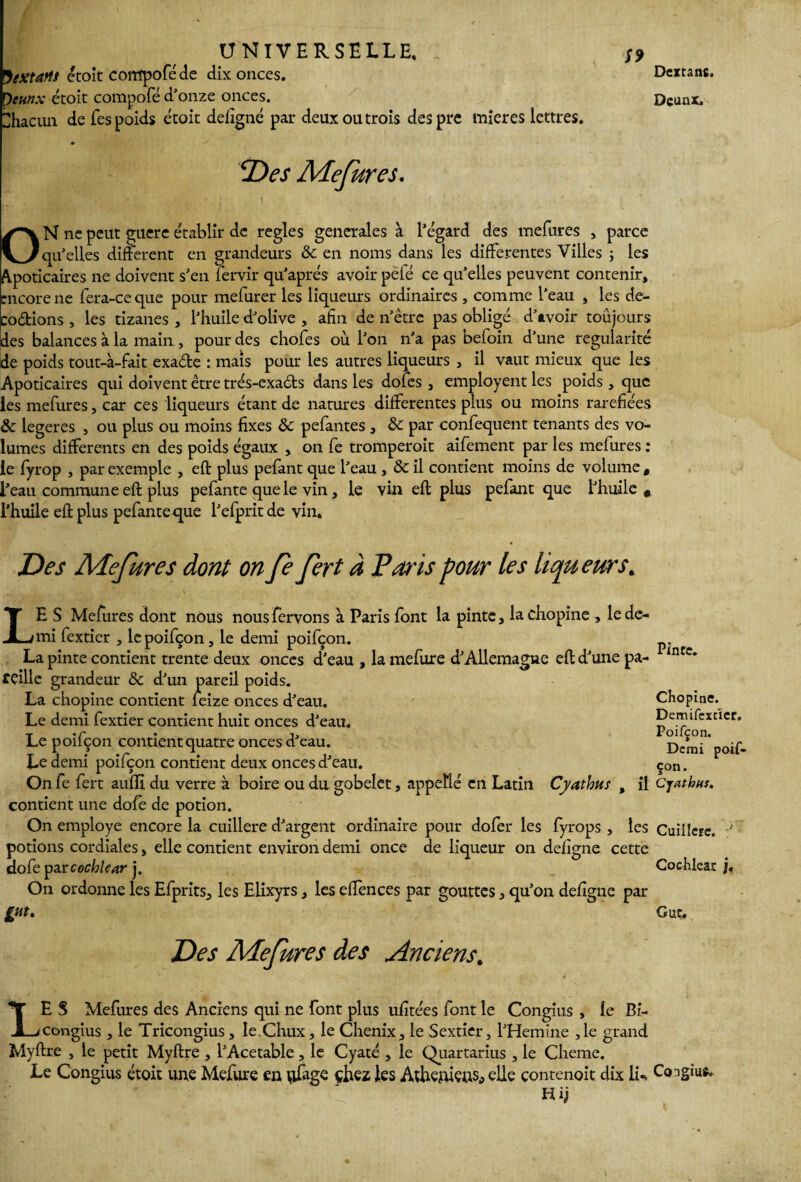 UNIVERSELLE. 59
Dextans étoit compoſé de dix onces. Dextans.
Deunx étoit compoſé d'onze onces. Deunx.
Chacun de ſes poids étoit deſigné par deux ou trois des pre mieres lettres.
Des Meſures.
ON ne peut guere établir de regles generales à l'égard des meſures , parce
qu'elles different en grandeurs & en noms dans les differentes Villes ; les
Apoticaires ne doivent s'en ſervir qu'aprés avoir péſé ce qu'elles peuvent contenir,
encore ne ſera-ce que pour meſurer les liqueurs ordinaires , comme l'eau , les de-
coctions , les tizanes , l'huile d'olive , afin de n'être pas obligé d'avoir toûjours
des balances à la main , pour des choſes où l'on n'a pas beſoin d'une regularité
de poids tout-à-fait exacte : mais pour les autres liqueurs , il vaut mieux que les
Apoticaires qui doivent être trés-exacts dans les doſes , employent les poids , que
les meſures, car ces liqueurs étant de natures differentes plus ou moins rarefiées
& legeres , ou plus ou moins fixes & peſantes , & par conſequent tenants des vo-
lumes differents en des poids égaux , on ſe tromperoit aiſement par les meſures :
le ſyrop , par exemple , eſt plus peſant que l'eau , & il contient moins de volume,
l'eau commune eſt plus peſante que le vin, le vin eſt plus peſant que l'huile ,
l'huile eſt plus peſante que l'eſprit de vin.
Des Meſures dont on ſe ſert à Paris pour les liqueurs.
LES Meſures dont nous nous ſervons à Paris ſont la pinte, la chopine , le de-
mi ſextier , le poiſçon, le demi poiſçon.
La pinte contient trente deux onces d'eau , la meſure d'Allemagne eſt d'une pa- Pinte.
reille grandeur & d'un pareil poids.
La chopine contient ſeize onces d'eau. Chopine.
Le demi ſextier contient huit onces d'eau. Demiſextier.
Le poiſçon contient quatre onces d'eau. Poiſçon.
Le demi poiſçon contient deux onces d'eau. Demi poiſ-
çon.
On ſe ſert auſſi du verre à boire ou du gobelet, appellé en Latin Cyathus , il Cyathus.
contient une doſe de potion.
On employe encore la cuillere d'argent ordinaire pour doſer les ſyrops , les Cuillere.
potions cordiales, elle contient environ demi once de liqueur on deſigne cette
doſe par cochlear j. Cochlear j.
On ordonne les Eſprits, les Elixyrs, les eſſences par gouttes, qu'on deſigne par
gut. Gut.
Des Meſures des Anciens.
LES Meſures des Anciens qui ne ſont plus uſitées ſont le Congius , le Bi-
congius , le Tricongius, le Chux, le Chenix, le Sextier, l'Hemine , le grand
Myſtre , le petit Myſtre , l'Acetable, le Cyaté , le Quartarius , le Cheme.
Le Congius étoit une Meſure en uſage chez les Atheniens, elle contenoit dix li- Congius.
H ij